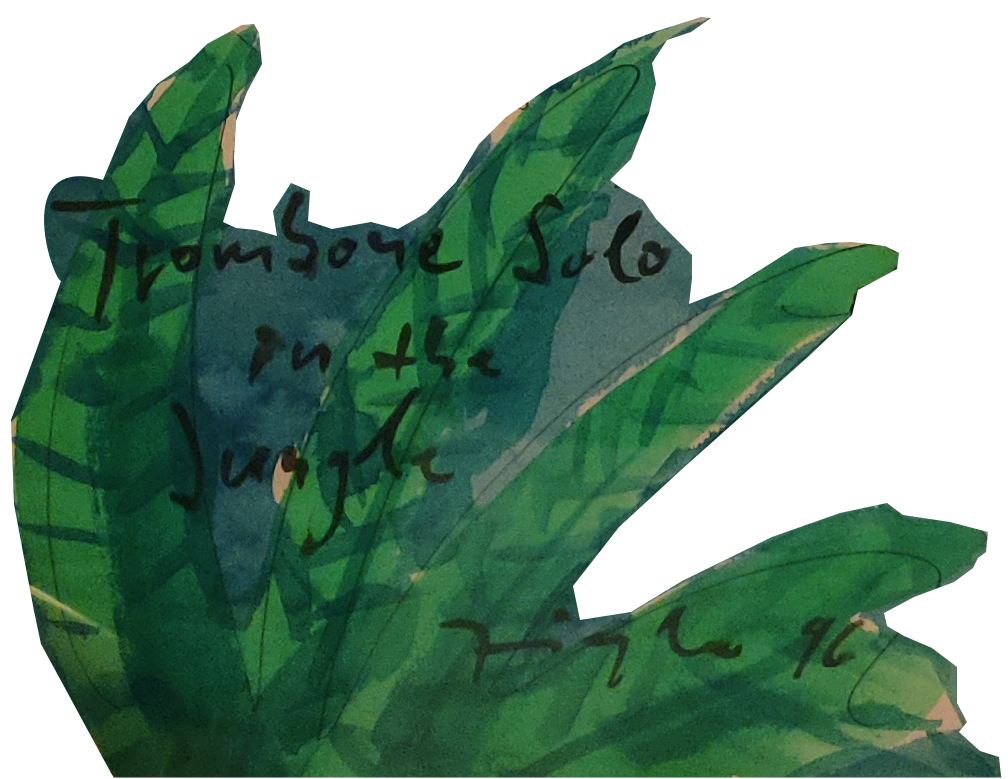 Trombone Solo
in the
Jungle
96